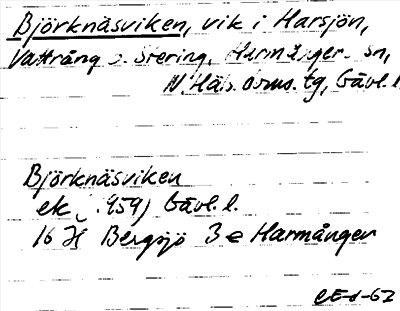 Björknäsviken, vik i Harsjön,
Vattrång o. Stering, Harmånger sn,
N. Häls. doms. tg, Gävl. l.
Björknäsviken
ek (1959) Gävl. l.
16 H Bergsjö 3 e Harmånger